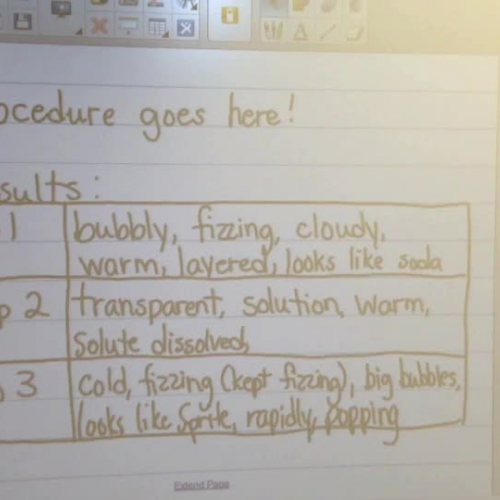 ocedure goes here!
sults:
1 bubbly, fizzing, cloudy,
warm, layered, looks like soda
p 2 transparent, solution, warm,
solute dissolved,
3 cold, fizzing (kept fizzing), big bubbles,
looks like Sprite, rapidly, popping
Extend Page